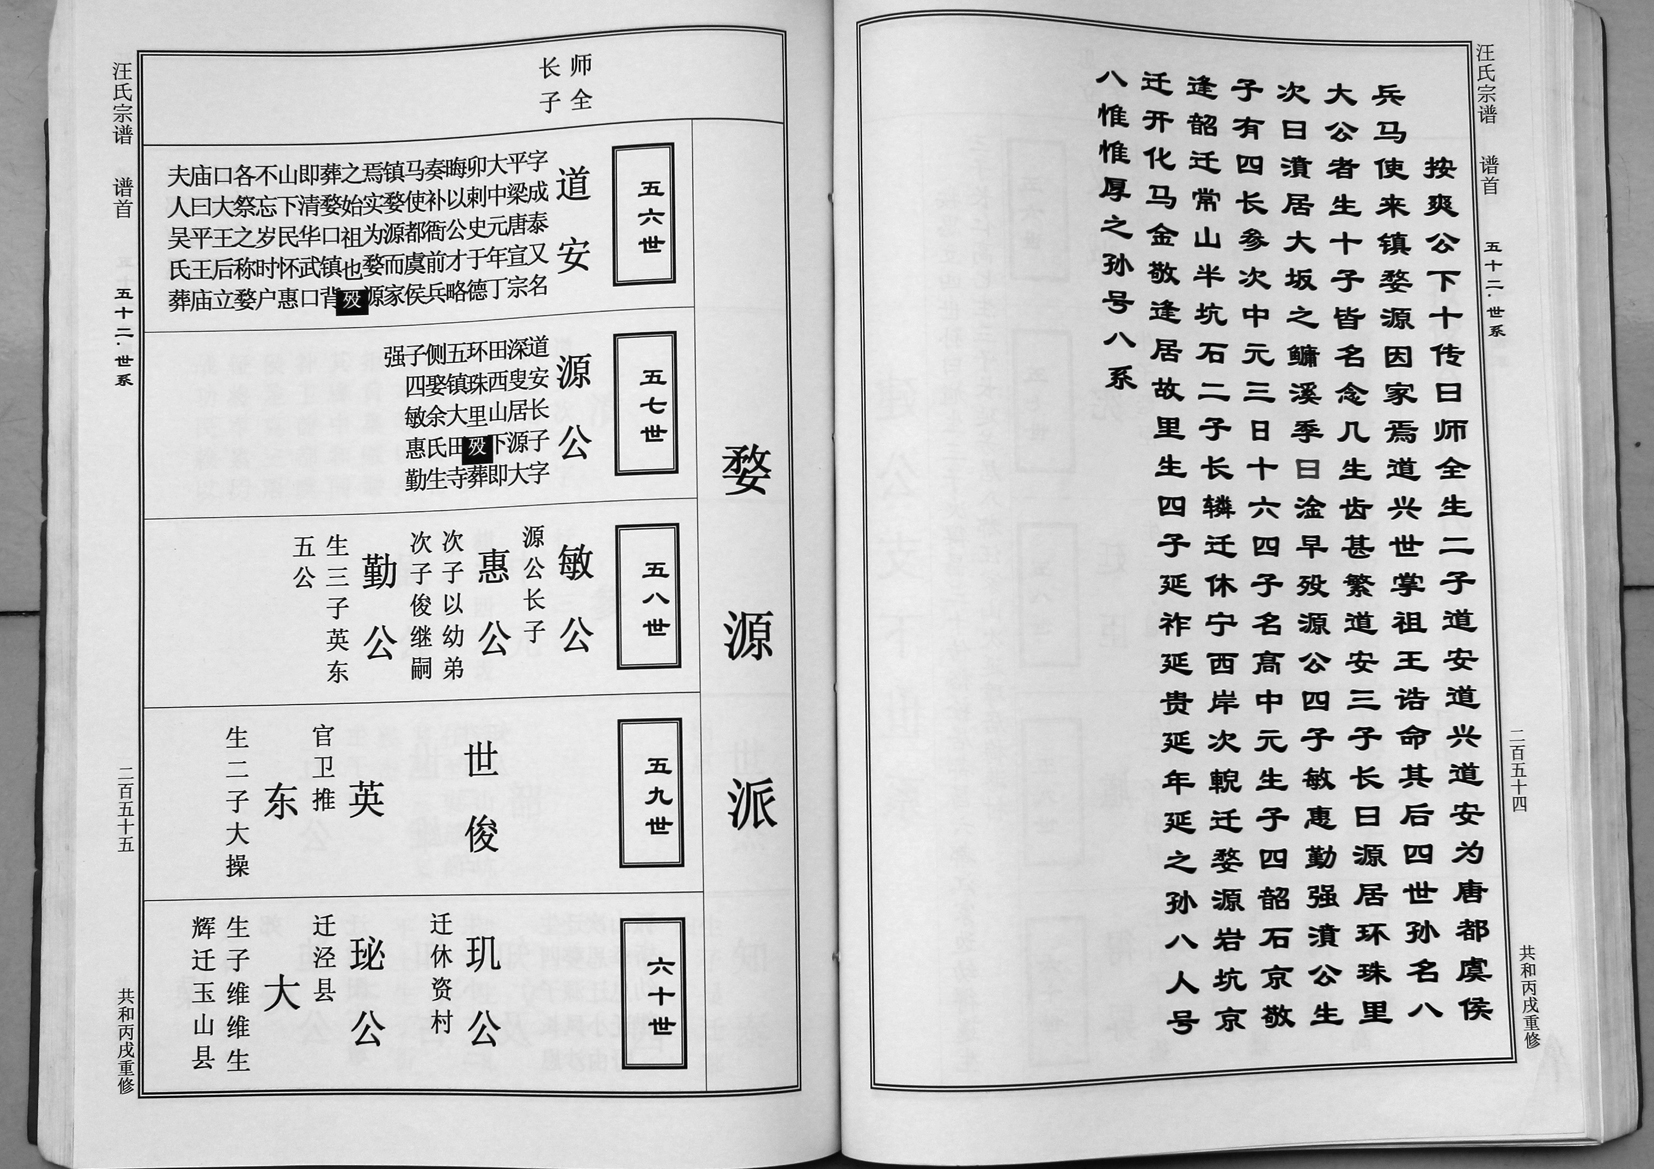 汪氏宗谱 谱首 五十二·世系 二百五十四 共和丙戌重修
按爽公下十传曰师全生二子道安道兴道安为唐都虞侯
兵马使来镇婺源因家焉道兴世掌祖王诰命其后四世孙名八
大公者生十子皆名念几生齿甚繁道安三子长曰源居环珠里
次曰濆居大坂之鳙溪季曰淦早殁源公四子敏惠勤强濆公生
子有四长参次中元三曰十六四子名高中元生子四韶石京敬
逢韶迁常山半坑石二子长辚迁休宁西岸次輗迁婺源岩坑京
迁开化马金敬逢居故里生四子延祚延贵延年延之孙八人号
八惟惟厚之孙号八系
婺源派
师全
长子
五六世
道安
字成泰又名
平梁唐宣宗
大中元年丁
卯剌史于德
晦以公才略
奏补衙前兵
马使都虞侯
镇婺源而家
焉实为婺源
之始祖也殁
葬婺口镇背
即清华武口
山下民怀惠
不忘岁时户
各祭之称婺
口大王后立
庙曰平王庙
夫人吴氏葬
五七世
源公
道安长子字
深叟居源大
田西山下即
环珠里殁葬
五镇大田寺
侧娶余氏生
子四敏惠勤
强
五八世
敏公
源公长子
惠公
次子以幼弟
次子俊继嗣
勤公
生三子英东
五公
五九世
世俊
英
官卫推
东
生二子大操
六十世
玑公
迁休资村
珌公
迁泾县
大
生子维维生
辉迁玉山县
汪氏宗谱 谱首 五十二·世系 二百五十五 共和丙戌重修